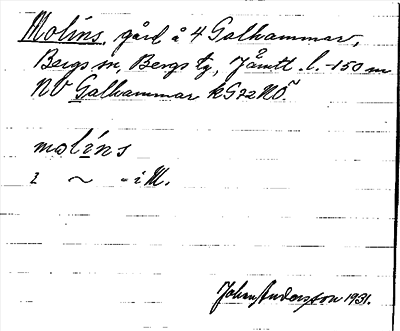 Molins, gård å 4 Galhammar,
Bergs sn, Bergs tg, Jämtl. l. -150 m
NV Galhammar
molíns
i ~ - i M.
Johan Andersson 1931.